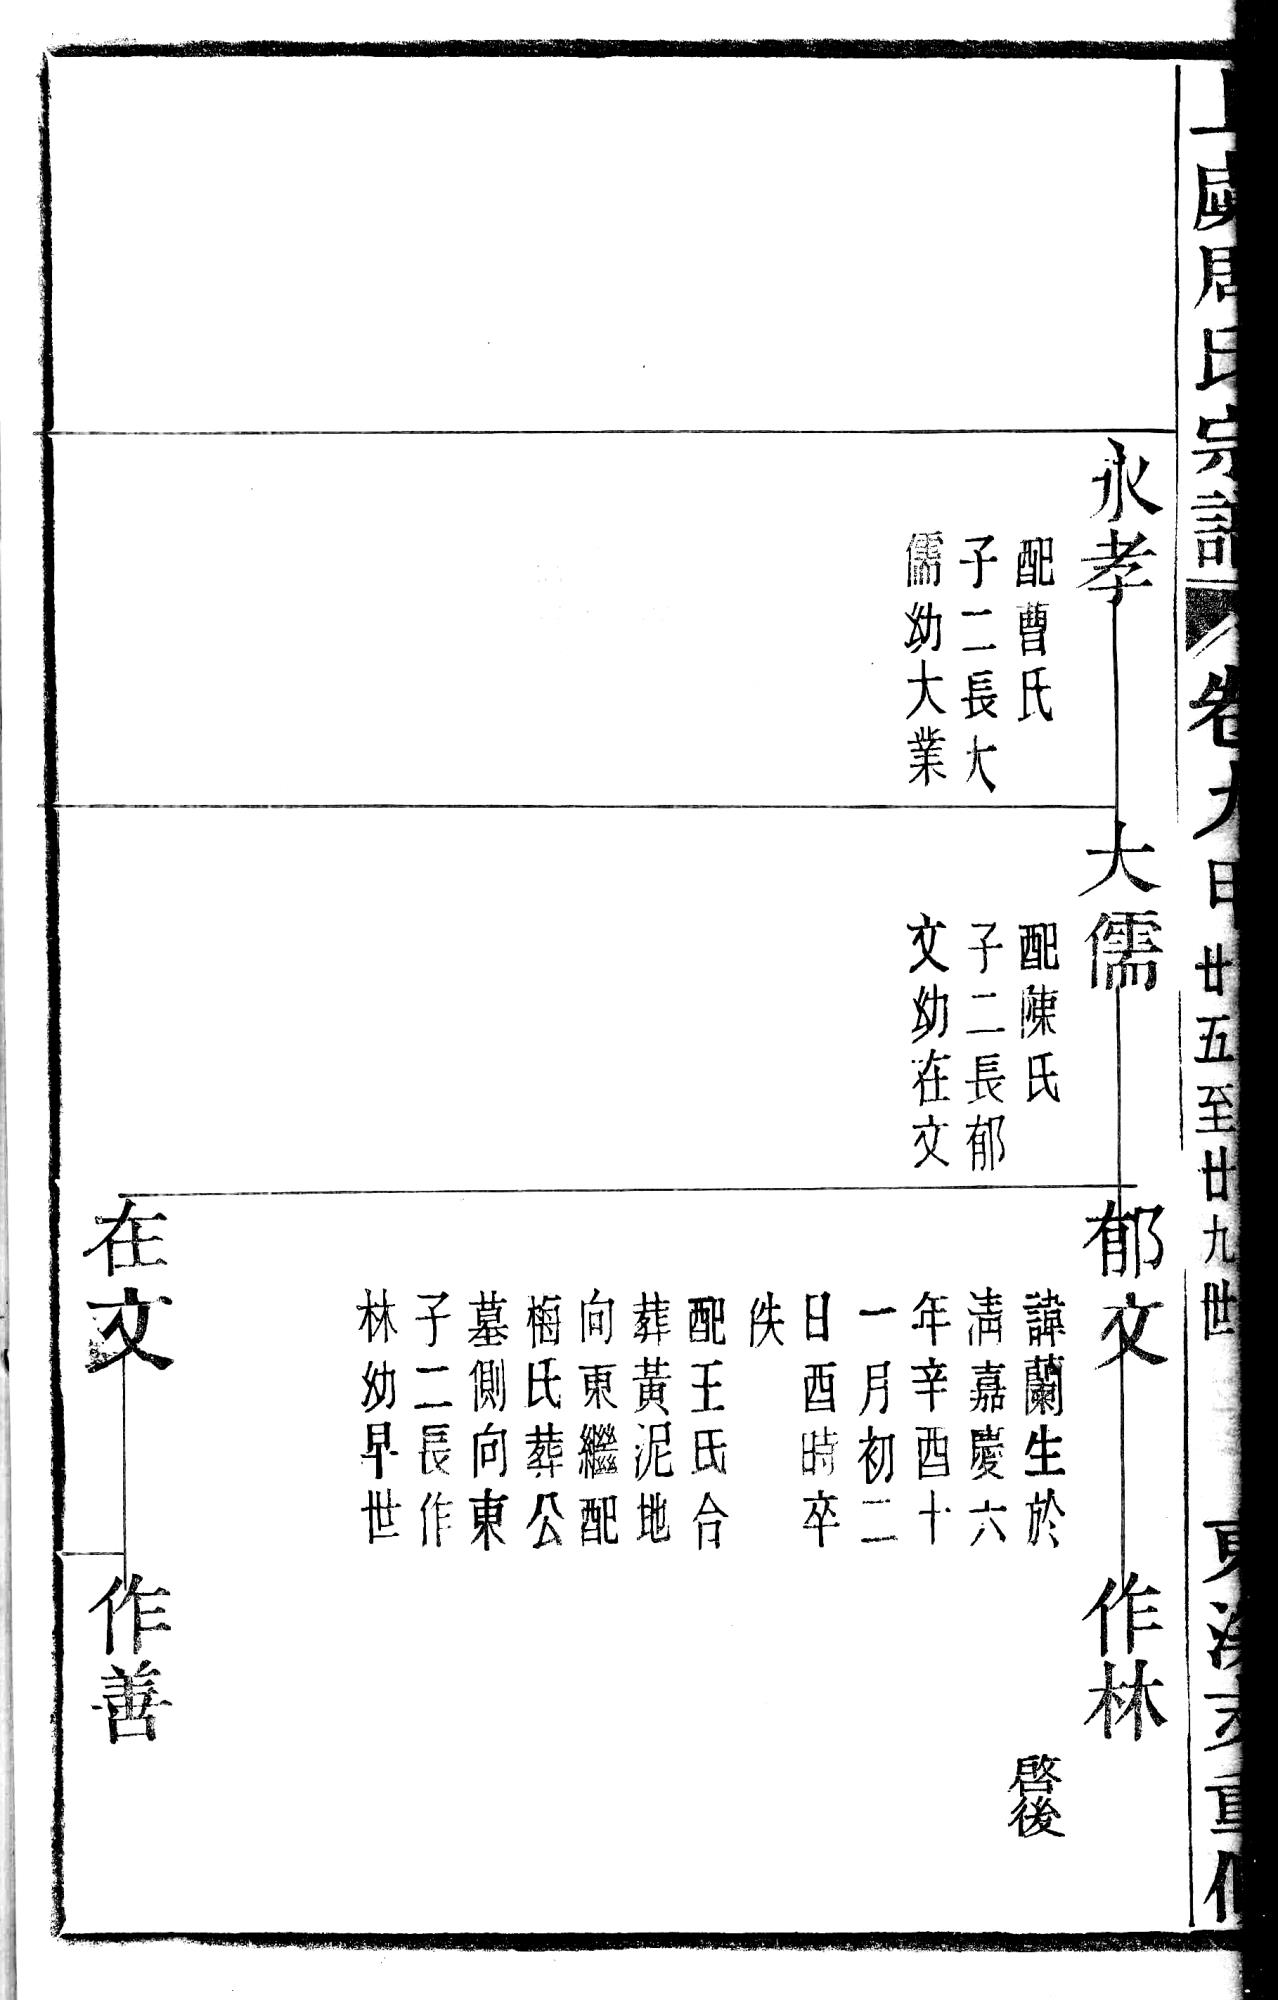 上虞周氏宗譜
卷九
廿五至廿九世
重修
永孝
配曹氏
子二長大
儒幼大業
大儒
配陳氏
子二長郁
文幼在文
郁文
諱蘭生於
淸嘉慶六
年辛酉十
一月初二
日酉時卒
佚
配王氏合
葬黃泥地
向東繼配
梅氏葬公
墓側向東
子二長作
林幼早世
作林
啓後
在文
作善